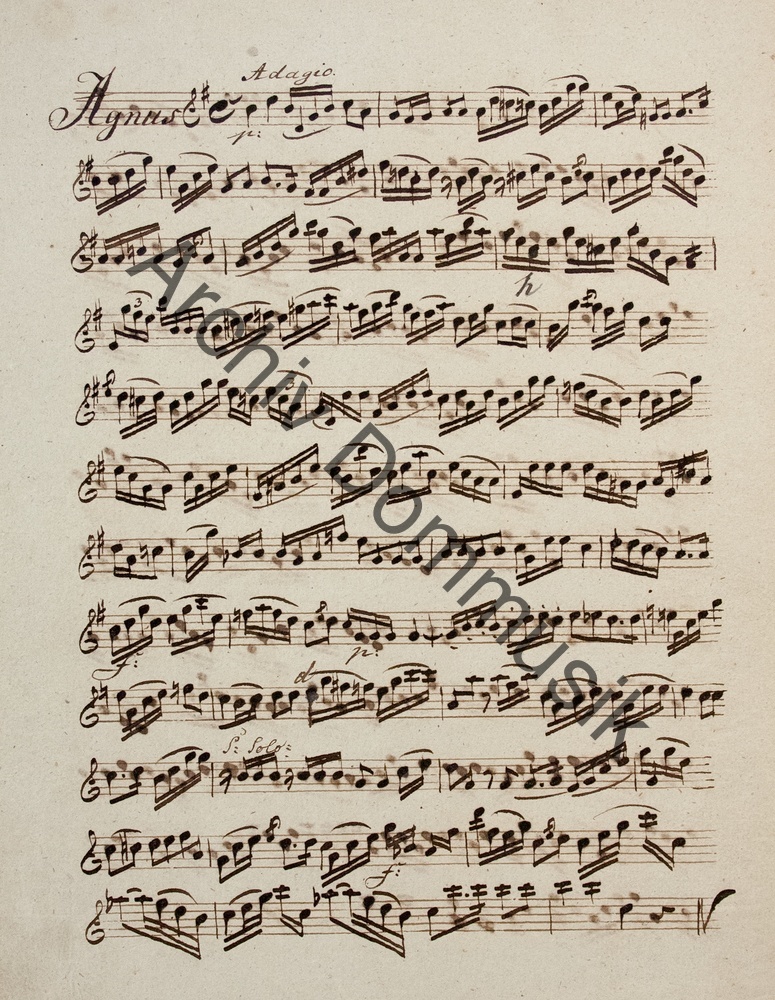 Adagio.
Agnus
p:
3
f:
p:
Solo
f:
Archiv Dommusik